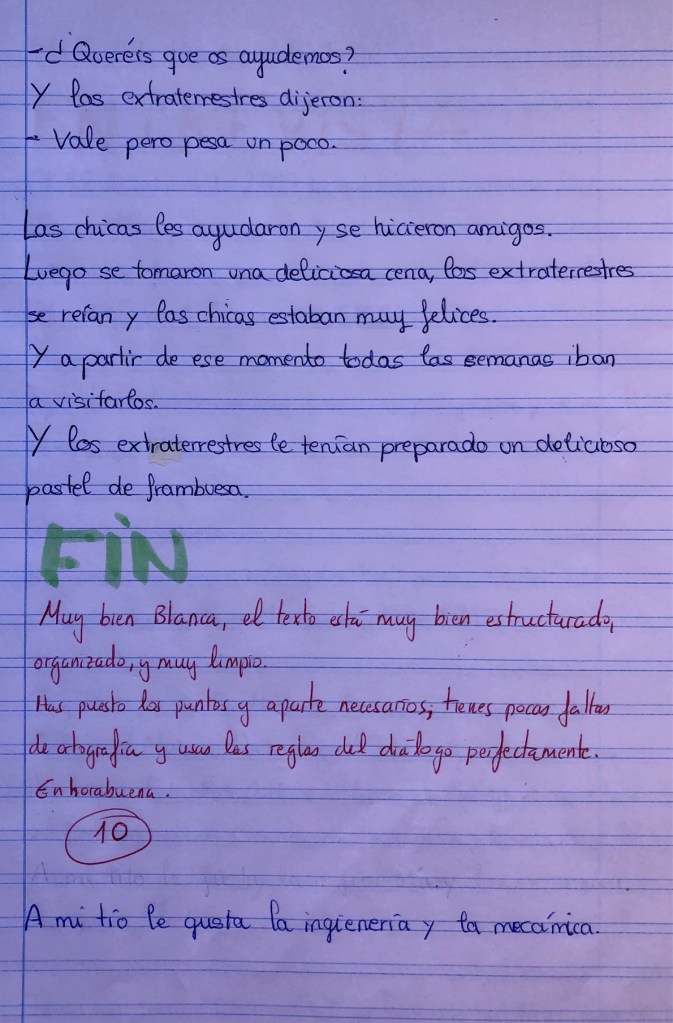 -¿Queréis que os ayudemos?
Y los extraterrestres dijeron:
- Vale pero pesa un poco.
Las chicas les ayudaron y se hicieron amigos.
Luego se tomaron una deliciosa cena, los extraterrestres
se reían y las chicas estaban muy felices.
Y a partir de ese momento todas las semanas iban
a visitarlos.
Y los extraterrestres le tenían preparado un delicioso
pastel de frambuesa.
FIN
Muy bien Blanca, el texto está muy bien estructurado,
organizado, y muy limpio.
Has puesto los puntos y aparte necesarios; tienes pocas faltas
de ortografía y usas las reglas del diálogo perfectamente.
Enhorabuena.
10
A mi tío le gusta la ingienería y la mecánica.